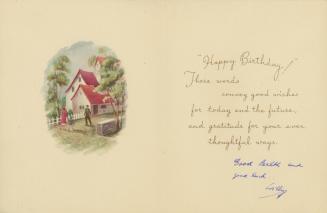 "Happy Birthday!"
These words
convey good wishes
for today and the future,
and gratitude for your ever
thoughtful ways.
Good health and
good luck.